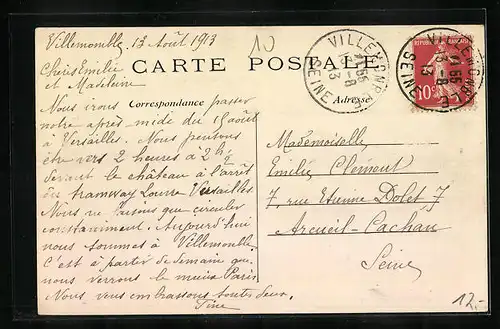 Villemomble, 13 Août 1913
10
Chères Emilie
et Madeleine
CARTE POSTALE
Correspondance
Adresse
Nous irons passer
notre après-midi du 15 août
à Versailles. Nous pensons
être vers 2 heures à 2h ½
devant le château à l'arrêt
du tramway Louvre Versailles
Nous ne faisons que circuler
constamment. Aujourd'hui
nous sommes à Villemomble.
C'est à partir de demain que
nous verrons le mieux Paris
Nous vous embrassons toutes deux.
VILLEMOMBLE
SEINE
VILLEMOMBLE
SEINE
10
Mademoiselle
Emilie Clément
7, rue Etienne Dolet 7
Arcueil-Cachan
Seine
12.-